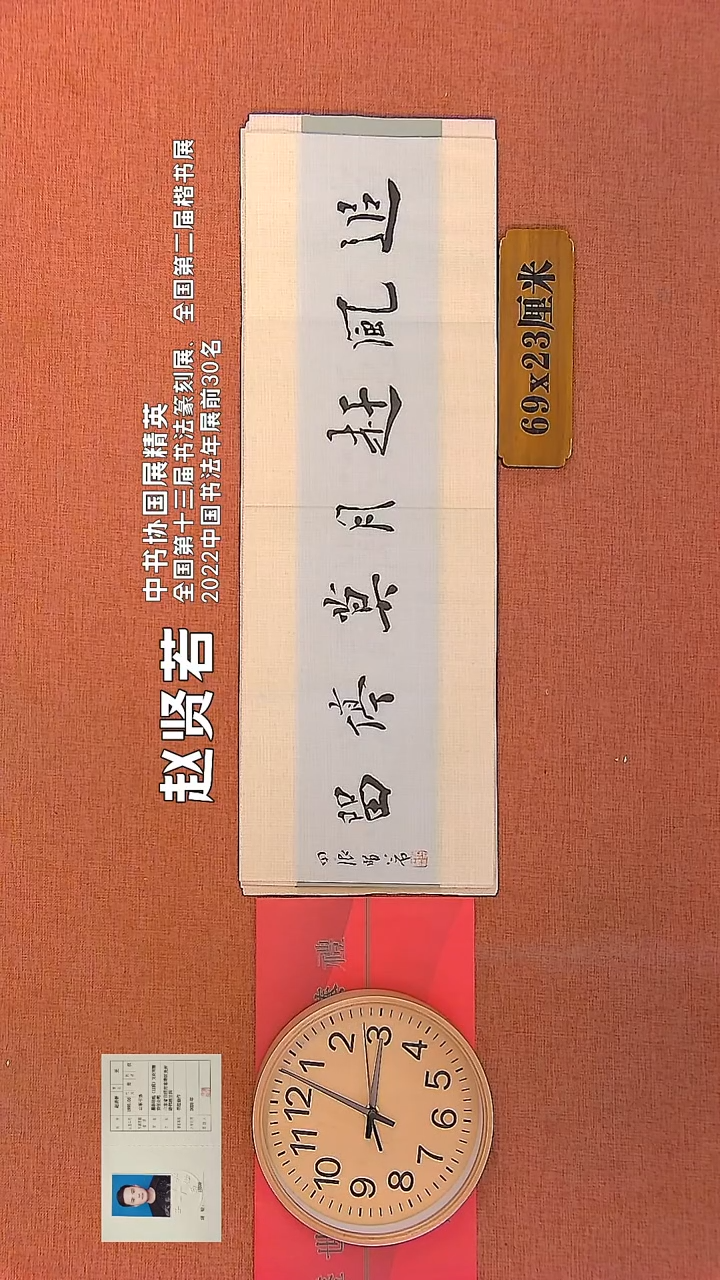 赵贤若
中书协国展精英
全国第十三届书法篆刻展、全国第二届楷书展
2022中国书法年展前30名
追風赶月莫停留
69x23厘米
12
1
2
3
4
5
6
7
8
9
10
11
禮